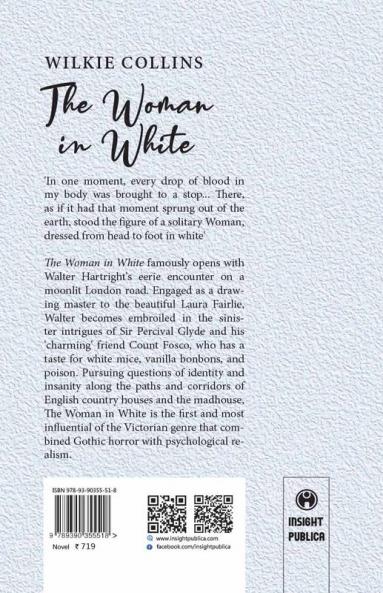 WILKIE COLLINS
The Woman
in White
'In one moment, every drop of blood in
my body was brought to a stop... There,
as if it had that moment sprung out of the
earth, stood the figure of a solitary Woman,
dressed from head to foot in white'
The Woman in White famously opens with
Walter Hartright's eerie encounter on a
moonlit London road. Engaged as a draw-
ing master to the beautiful Laura Fairlie,
Walter becomes embroiled in the sinis-
ter intrigues of Sir Percival Glyde and his
'charming' friend Count Fosco, who has a
taste for white mice, vanilla bonbons, and
poison. Pursuing questions of identity and
insanity along the paths and corridors of
English country houses and the madhouse,
The Woman in White is the first and most
influential of the Victorian genre that com-
bined Gothic horror with psychological re-
alism.
ISBN 978-93-90355-51-8
9 789390 355518 >
Novel ₹ 719
www.insightpublica.com
facebook.com/insightpublica
INSIGHT
PUBLICA